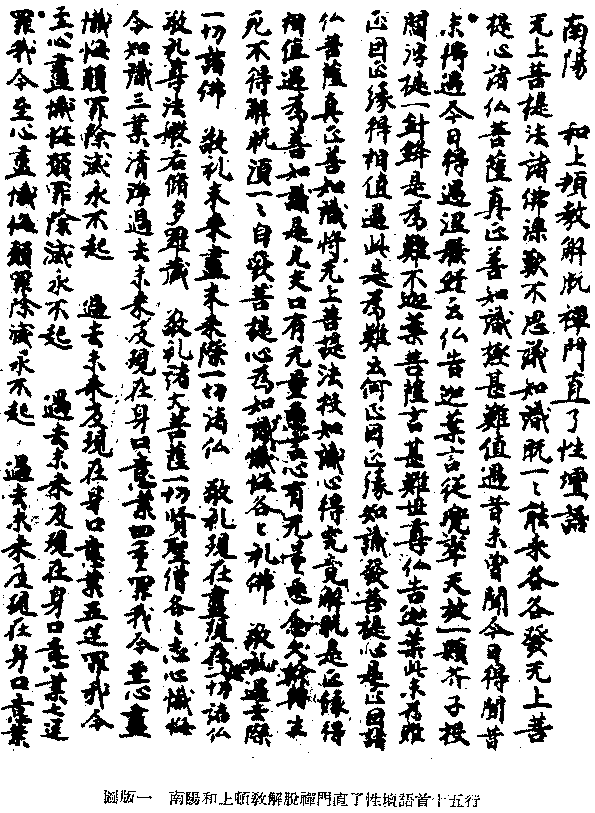 南陽 和上頓教解脫禪門直了性壇語
无上菩提法諸佛深歎不思議知識旣一〻能來各各發无上菩
提心諸仏菩薩真正善知識極甚難值過昔未曾聞今日得聞昔
未偶過今日得過涅槃經云仏告迦葉言從兜率天放一顆芥子投
閻浮提一針鋒是為難不迦葉菩薩言甚難世尊仏告迦葉此未為難
正因正緣得相值遇此是為難云何正因正緣知識發菩提心是正因諸
仏菩薩真正善知識將无上菩提法投知識心得究竟解脫是正緣得
相值遇為善知識是凡夫口有无量惡言心有无量惡念久輪轉生
死不得解脫須一〻自發菩提心為知識懺悔各〻礼佛 敬礼過去際
一切諸佛 敬礼未來盡未來際一切諸仏 敬礼現在盡現在一切諸仏
敬礼尊法般若脩多羅藏 敬礼諸大菩薩一切賢聖僧各〻志心懺悔
令知識三業清淨過去未來及現在身口意業四重罪我今至心盡
懺悔願罪除滅永不起 過去未來及現在身口意業五逆罪我今
至心盡懺悔願罪除滅永不起 過去未來及現在身口意業七逆
罪我今至心盡懺悔願罪除滅永不起 過去未來及現在身口意業
圖版一 南陽和上頓教解脫禪門直了性壇語首十五行